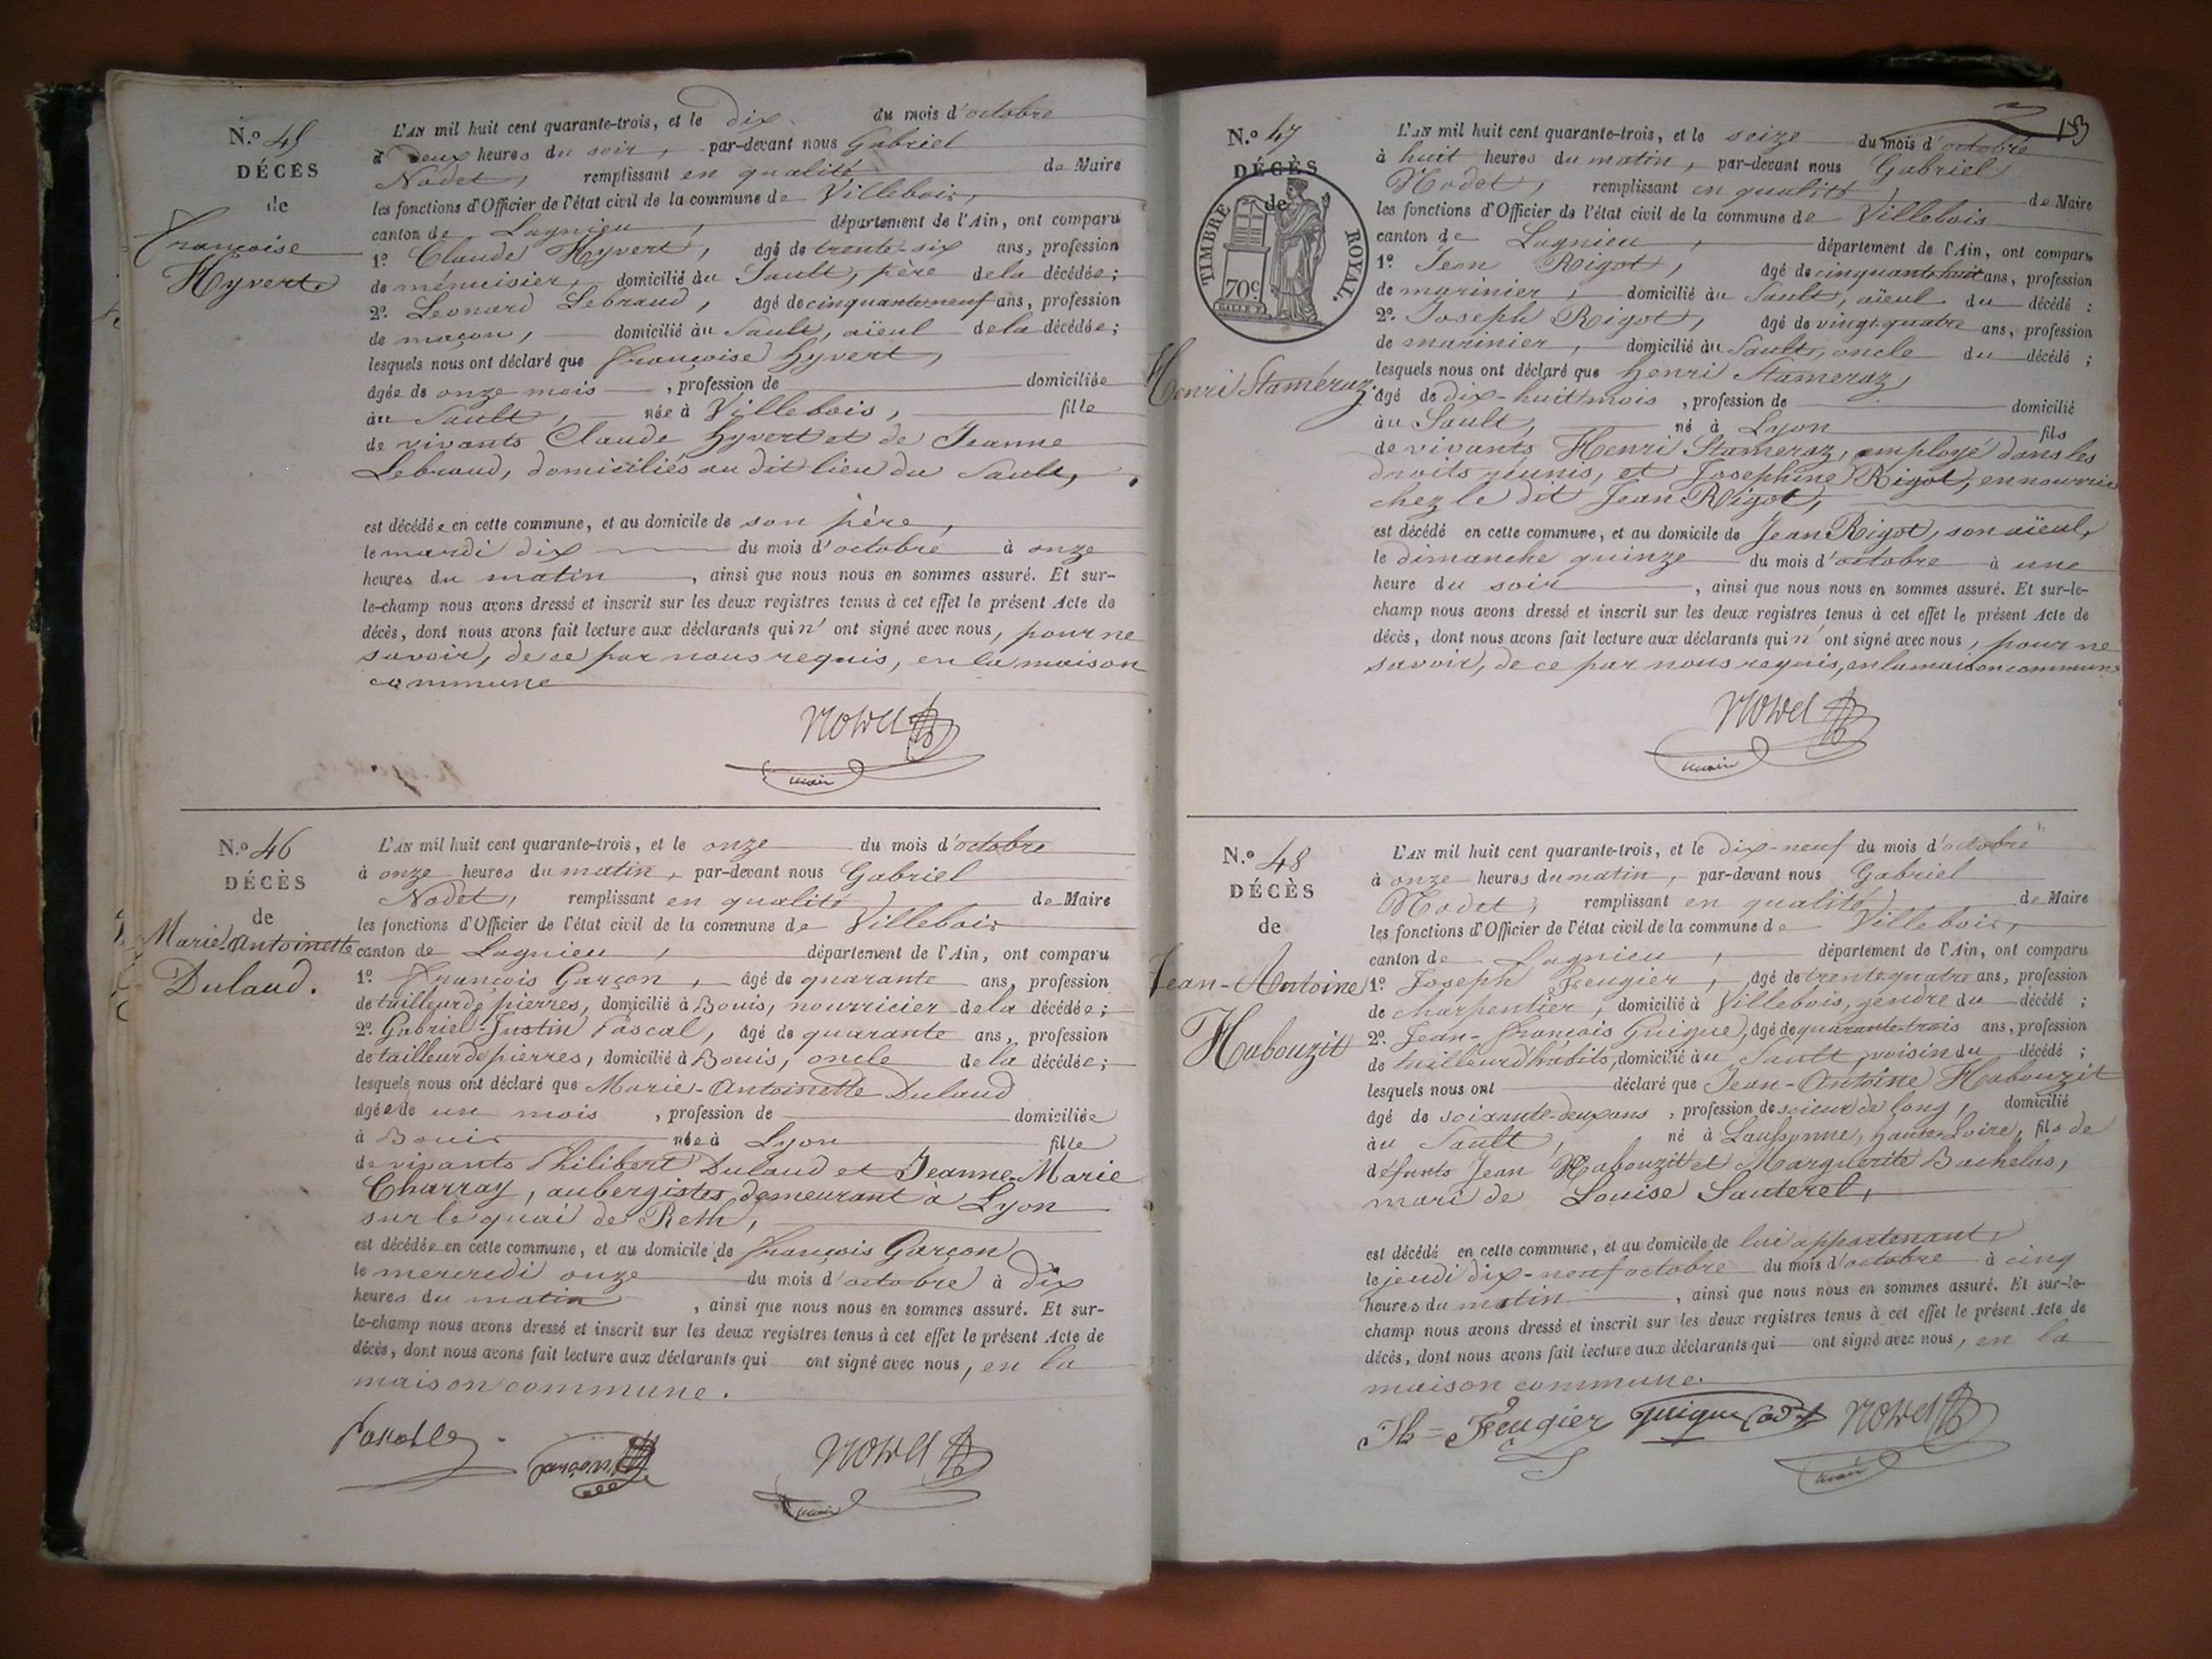 N.º 45
DÉCÈS
de
Françoise
Hyvert
L'AN mil huit cent quarante-trois, et le dix du mois d'octobre
à deux heures du soir, par-devant nous Gabriel
Nodet, remplissant en qualité de Maire
les fonctions d'Officier de l'état civil de la commune de Villebois,
canton de Lagnieu, département de l'Ain, ont comparu
1º. Claude Hyvert, âgé de trente-six ans, profession
de menuisier, domicilié au Sault, père de la décédée;
2º. Leonard Lebraud, âgé de cinquante neuf ans, profession
de maçon, domicilié au Sault, aïeul de la décédée;
lesquels nous ont déclaré que françoise hyvert,
âgée de onze mois, profession de domiciliée
au Sault, née à Villebois, fille
de vivants Claude hyvert et de Jeanne
Lebraud, domiciliés au dit lieu du Sault,
est décédée en cette commune, et au domicile de son père,
le mardi dix du mois d'octobre à onze
heures du matin, ainsi que nous nous en sommes assuré. Et sur-
le-champ nous avons dressé et inscrit sur les deux registres tenus à cet effet le présent Acte de
décès, dont nous avons fait lecture aux déclarants qui n'ont signé avec nous, pour ne
savoir, de ce par nous requis, en la maison
commune
Nodet
maire
N.º 46
DÉCÈS
de
Marie-Antoinette
Dulaud.
L'AN mil huit cent quarante-trois, et le onze du mois d'octobre
à onze heures du matin, par-devant nous Gabriel
Nodet, remplissant en qualité de Maire
les fonctions d'Officier de l'état civil de la commune de Villebois
canton de Lagnieu, département de l'Ain, ont comparu
1º. François Garçon, âgé de quarante ans, profession
de tailleur de pierres, domicilié à Bouis, nourricier de la décédée;
2º. Gabriel-Justin Pascal, âgé de quarante ans, profession
de tailleur de pierres, domicilié à Bouis, oncle de la décédée;
lesquels nous ont déclaré que Marie-Antoinette Dulaud
âgée de un mois, profession de domiciliée
à Bouis née à Lyon fille
de vivants Philibert Dulaud et Jeanne-Marie
Charray, aubergistes demeurant à Lyon
sur le quai de Reth,
est décédée en cette commune, et au domicile de françois Garçon
le mercredi onze du mois d'octobre à dix
heures du matin, ainsi que nous nous en sommes assuré. Et sur-
le-champ nous avons dressé et inscrit sur les deux registres tenus à cet effet le présent Acte de
décès, dont nous avons fait lecture aux déclarants qui ont signé avec nous, en la
maison commune.
Garçon Nodet
maire
183
N.º 47
DÉCÈS
de
TIMBRE ROYAL.
70c
Henri Staméroz.
L'AN mil huit cent quarante-trois, et le seize du mois d'octobre
à huit heures du matin, par-devant nous Gabriel
Nodet, remplissant en qualité de Maire
les fonctions d'Officier de l'état civil de la commune de Villebois
canton de Lagnieu, département de l'Ain, ont comparu
1º. Jean Rigot, âgé de cinquante huit ans, profession
de marinier, domicilié au Sault, aïeul du décédé;
2º. Joseph Rigot, âgé de vingt-quatre ans, profession
de marinier, domicilié au Sault, oncle du décédé;
lesquels nous ont déclaré que henri Stameroz,
âgé de dix-huit mois, profession de domicilié
au Sault, né à Lyon fils
de vivants Henri Stameroz, employé dans les
droits réunis, et Josephine Rigot, en nourrice
chez le dit Jean Rigot,
est décédé en cette commune, et au domicile de Jean Rigot, son aïeul,
le dimanche quinze du mois d'octobre à une
heure du soir, ainsi que nous nous en sommes assuré. Et sur-le-
champ nous avons dressé et inscrit sur les deux registres tenus à cet effet le présent Acte de
décès, dont nous avons fait lecture aux déclarants qui n'ont signé avec nous, pour ne
savoir, de ce par nous requis, en la maison commune
Nodet
maire
N.º 48
DÉCÈS
de
Jean-Antoine
Habouzit
L'AN mil huit cent quarante-trois, et le dix-neuf du mois d'octobre
à onze heures du matin, par-devant nous Gabriel
Nodet, remplissant en qualité de Maire
les fonctions d'Officier de l'état civil de la commune de Villebois,
canton de Lagnieu, département de l'Ain, ont comparu
1º. Joseph Feugier, âgé de trente quatre ans, profession
de charpentier, domicilié à Villebois, gendre du décédé;
2º. Jean-françois Guigue, âgé de quarante-trois ans, profession
de tailleur d'habits, domicilié au Sault, voisin du décédé;
lesquels nous ont déclaré que Jean-Antoine Habouzit
âgé de soixante-deux ans, profession de scieur de long, domicilié
au Sault, né à Laussonne, haute-Loire, fils de
défunts Jean Habouzit et Marguerite Bachelas,
mari de Louise Sauterel,
est décédé en cette commune, et au domicile de lui appartenant,
le jeudi dix-neuf octobre du mois d'octobre à cinq
heures du matin, ainsi que nous nous en sommes assuré. Et sur-le-
champ nous avons dressé et inscrit sur les deux registres tenus à cet effet le présent Acte de
décès, dont nous avons fait lecture aux déclarants qui ont signé avec nous, en la
maison commune.
Feugier Guigue Nodet
maire